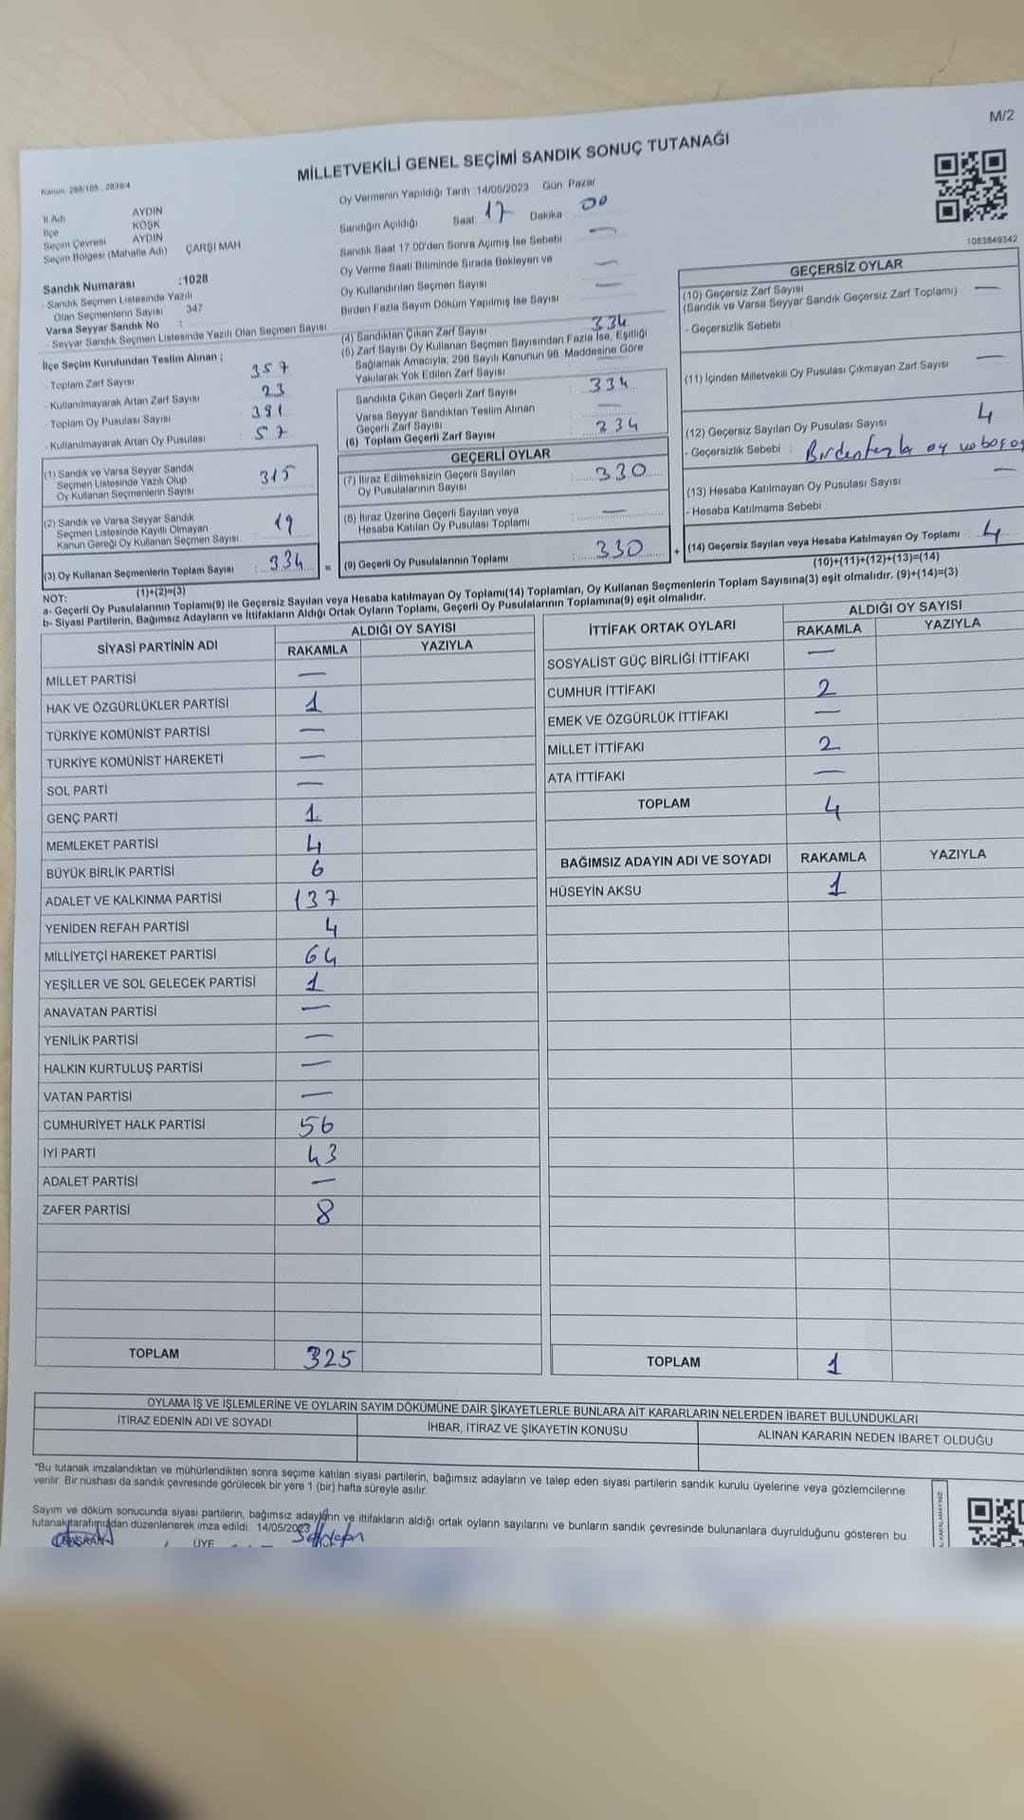 M/2
MİLLETVEKİLİ GENEL SEÇİMİ SANDIK SONUÇ TUTANAĞI
İl Adı AYDIN
İlçe KÖŞK
Seçim Çevresi AYDIN
Seçim Bölgesi (Mahalle Adı) ÇARŞI MAH
Sandık Numarası :1028
Sandık Seçmen Listesinde Yazılı
Olan Seçmenlerin Sayısı 347
Varsa Seyyar Sandık No :
- Seyyar Sandık Seçmen Listesinde Yazılı Olan Seçmen Sayısı
İlçe Seçim Kurulundan Teslim Alınan ;
- Toplam Zarf Sayısı 357
- Kullanılmayarak Artan Zarf Sayısı 23
- Toplam Oy Pusulası Sayısı 391
- Kullanılmayarak Artan Oy Pusulası 57
(1) Sandık ve Varsa Seyyar Sandık
Seçmen Listesinde Yazılı Olup
Oy Kullanan Seçmenlerin Sayısı 315
(2) Sandık ve Varsa Seyyar Sandık
Seçmen Listesinde Kayıtlı Olmayan
Kanun Gereği Oy Kullanan Seçmen Sayısı 19
(3) Oy Kullanan Seçmenlerin Toplam Sayısı : 334
(1)+(2)=(3)
Oy Vermenin Yapıldığı Tarih 14/05/2023 Gün Pazar
Sandığın Açıldığı Saat 17 Dakika 00
Sandık Saat 17.00'den Sonra Açılmış İse Sebebi —
Oy Verme Saati Bitiminde Sırada Bekleyen ve
Oy Kullandırılan Seçmen Sayısı —
Birden Fazla Sayım Döküm Yapılmış İse Sayısı —
(4) Sandıktan Çıkan Zarf Sayısı 334
(5) Zarf Sayısı Oy Kullanan Seçmen Sayısından Fazla İse, Eşitliği
Sağlamak Amacıyla, 298 Sayılı Kanunun 98. Maddesine Göre
Yakılarak Yok Edilen Zarf Sayısı
Sandıkta Çıkan Geçerli Zarf Sayısı 334
Varsa Seyyar Sandıktan Teslim Alınan
Geçerli Zarf Sayısı —
(6) Toplam Geçerli Zarf Sayısı 334
GEÇERLİ OYLAR
(7) İtiraz Edilmeksizin Geçerli Sayılan
Oy Pusulalarının Sayısı 330
(8) İtiraz Üzerine Geçerli Sayılan veya
Hesaba Katılan Oy Pusulası Toplamı —
= (9) Geçerli Oy Pusulalarının Toplamı 330 +
1083849342
GEÇERSİZ OYLAR
(10) Geçersiz Zarf Sayısı —
(Sandık ve Varsa Seyyar Sandık Geçersiz Zarf Toplamı)
- Geçersizlik Sebebi
(11) İçinden Milletvekili Oy Pusulası Çıkmayan Zarf Sayısı —
(12) Geçersiz Sayılan Oy Pusulası Sayısı 4
- Geçersizlik Sebebi : Birden fazla oy ve boş oy
(13) Hesaba Katılmayan Oy Pusulası Sayısı —
- Hesaba Katılmama Sebebi
(14) Geçersiz Sayılan veya Hesaba Katılmayan Oy Toplamı 4
(10)+(11)+(12)+(13)=(14)
NOT:
a- Geçerli Oy Pusulalarının Toplamı(9) ile Geçersiz Sayılan veya Hesaba katılmayan Oy Toplamı(14) Toplamları, Oy Kullanan Seçmenlerin Toplam Sayısına(3) eşit olmalıdır. (9)+(14)=(3)
b- Siyasi Partilerin, Bağımsız Adayların ve İttifakların Aldığı Ortak Oyların Toplamı, Geçerli Oy Pusulalarının Toplamına(9) eşit olmalıdır.
SİYASİ PARTİNİN ADI ALDIĞI OY SAYISI
RAKAMLA YAZIYLA
MİLLET PARTİSİ —
HAK VE ÖZGÜRLÜKLER PARTİSİ 1
TÜRKİYE KOMÜNİST PARTİSİ —
TÜRKİYE KOMÜNİST HAREKETİ —
SOL PARTİ —
GENÇ PARTİ 1
MEMLEKET PARTİSİ 4
BÜYÜK BİRLİK PARTİSİ 6
ADALET VE KALKINMA PARTİSİ 137
YENİDEN REFAH PARTİSİ 4
MİLLİYETÇİ HAREKET PARTİSİ 64
YEŞİLLER VE SOL GELECEK PARTİSİ 1
ANAVATAN PARTİSİ —
YENİLİK PARTİSİ —
HALKIN KURTULUŞ PARTİSİ —
VATAN PARTİSİ —
CUMHURİYET HALK PARTİSİ 56
İYİ PARTİ 43
ADALET PARTİSİ —
ZAFER PARTİSİ 8
TOPLAM 325
İTTİFAK ORTAK OYLARI ALDIĞI OY SAYISI
RAKAMLA YAZIYLA
SOSYALİST GÜÇ BİRLİĞİ İTTİFAKI —
CUMHUR İTTİFAKI 2
EMEK VE ÖZGÜRLÜK İTTİFAKI —
MİLLET İTTİFAKI 2
ATA İTTİFAKI —
TOPLAM 4
BAĞIMSIZ ADAYIN ADI VE SOYADI RAKAMLA YAZIYLA
HÜSEYİN AKSU 1
TOPLAM 1
OYLAMA İŞ VE İŞLEMLERİNE VE OYLARIN SAYIM DÖKÜMÜNE DAİR ŞİKAYETLERLE BUNLARA AİT KARARLARIN NELERDEN İBARET BULUNDUKLARI
İTİRAZ EDENİN ADI VE SOYADI İHBAR, İTİRAZ VE ŞİKAYETİN KONUSU ALINAN KARARIN NEDEN İBARET OLDUĞU
"Bu tutanak imzalandıktan ve mühürlendikten sonra seçime katılan siyasi partilerin, bağımsız adayların ve talep eden siyasi partilerin sandık kurulu üyelerine veya gözlemcilerine
verilir. Bir nüshası da sandık çevresinde görülecek bir yere 1 (bir) hafta süreyle asılır.
Sayım ve döküm sonucunda siyasi partilerin, bağımsız adayların ve ittifakların aldığı ortak oyların sayılarını ve bunların sandık çevresinde bulunanlara duyrulduğunu gösteren bu
tutanak tarafımızdan düzenlenerek imza edildi. 14/05/2023
ÜYE